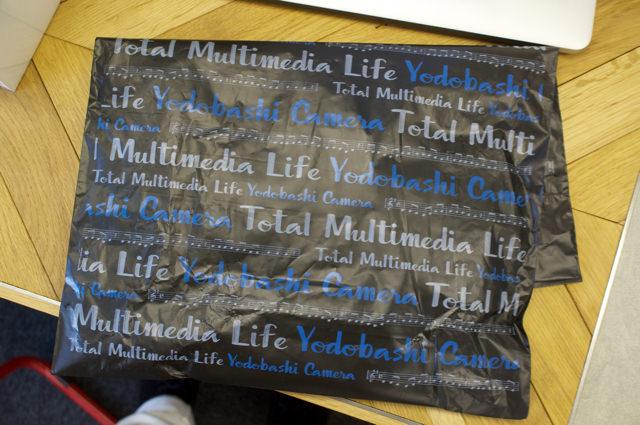 Total Multimedia Life Yodobashi
Total Multimedia Life Yodobashi
Life Yodobashi Camera Total Multi
shi Camera
Multimedia Life Yodobashi Came
Total Multimedia Life Yodobashi Camera
ashi Camera Total Multimedia Life
Total Multimedia Life Yodobas
dia Life Yodobashi Camera Total M
shi Camera
Multimedia Life Yodobashi Camera
Total Multimedia Life Yodobashi Camera